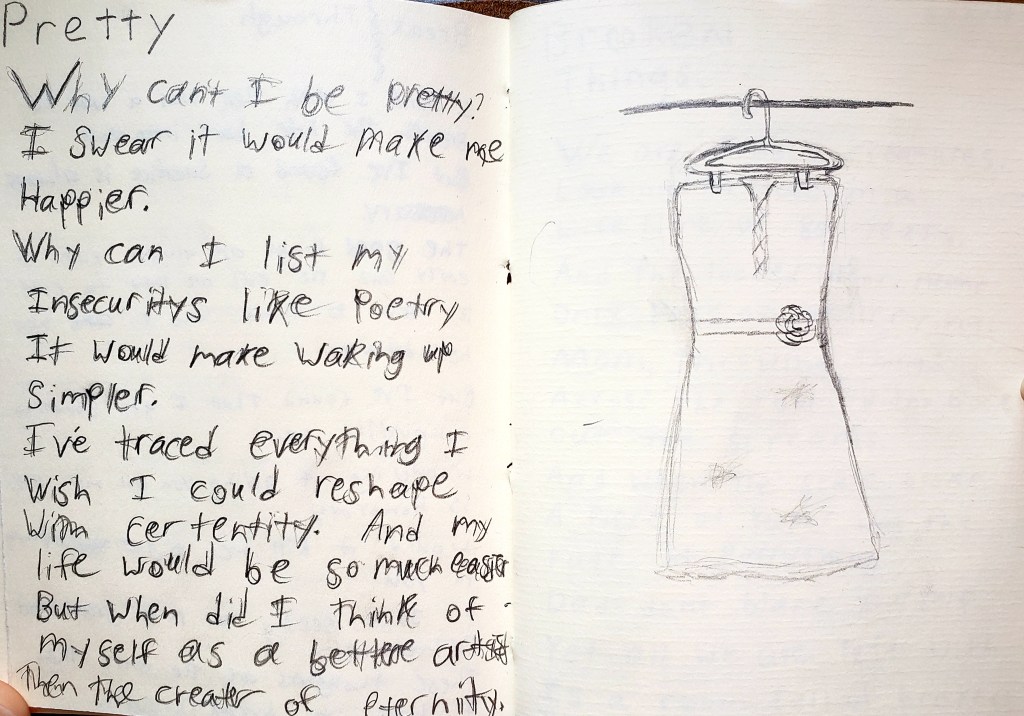 Pretty
Why can't I be pretty?
I swear it would make me
Happier.
Why can I list my
Insecuritys like Poetry
It would make waking up
simpler.
I've traced everything I
wish I could reshape
with certentity. And my
life would be so much easier
But when did I think of
myself as a better artist
Then the creater of eternity.